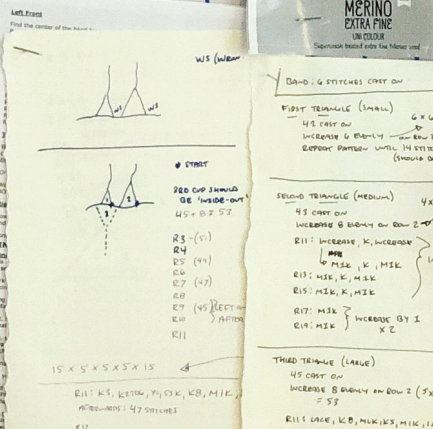 Left Front
Find the center of the
MERINO
EXTRA FINE
UNI COLOUR
WS (WRON
WS
WS
START
3RD CUP SHOULD
BE 'INSIDE-OUT'
45 + 8 = 53
1
2
3
R3 - (51)
R4
R5 (49)
R6
R7 (47)
R8
R9 (45)
R10
R11
LEFT ON
AFTER
15 x 5 x 5 x 5 x 15
R11: K3, K2TOG, YO, S3K, K8, M1K,
AFTERWARDS: 47 STITCHES
BAND: 6 STITCHES CAST ON
FIRST TRIANGLE (SMALL)
6 x 6
41 CAST ON
INCREASE 6 EVENLY ON ROW 2
REPEAT PATTERN UNTIL 14 STIT
(SHOULD
SECOND TRIANGLE (MEDIUM)
43 CAST ON
INCREASE 8 EVENLY ON ROW 2
R11: INCREASE, K, INCREASE
M1K, K, M1K
R13: M1K, K, M1K
R15: M1K, K, M1K
R17: M1K
R19: M1K
INCREASE BY 1
x 2
THIRD TRIANGLE (LARGE)
45 CAST ON
INCREASE 8 EVENLY ON ROW 2
= 53
R11: LACE, K8, M1K, K3, M1K,